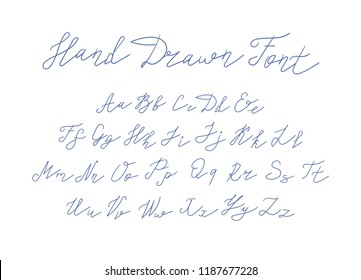 Hand Drawn Font
Aa Bb Cc Dd Ee
Ff Gg Hh Ii Jj Kk Ll
Mm Nn Oo Pp Qq Rr Ss Tt
Uu Vv Ww Xx Yy Zz
shutterstock.com · 1187677228